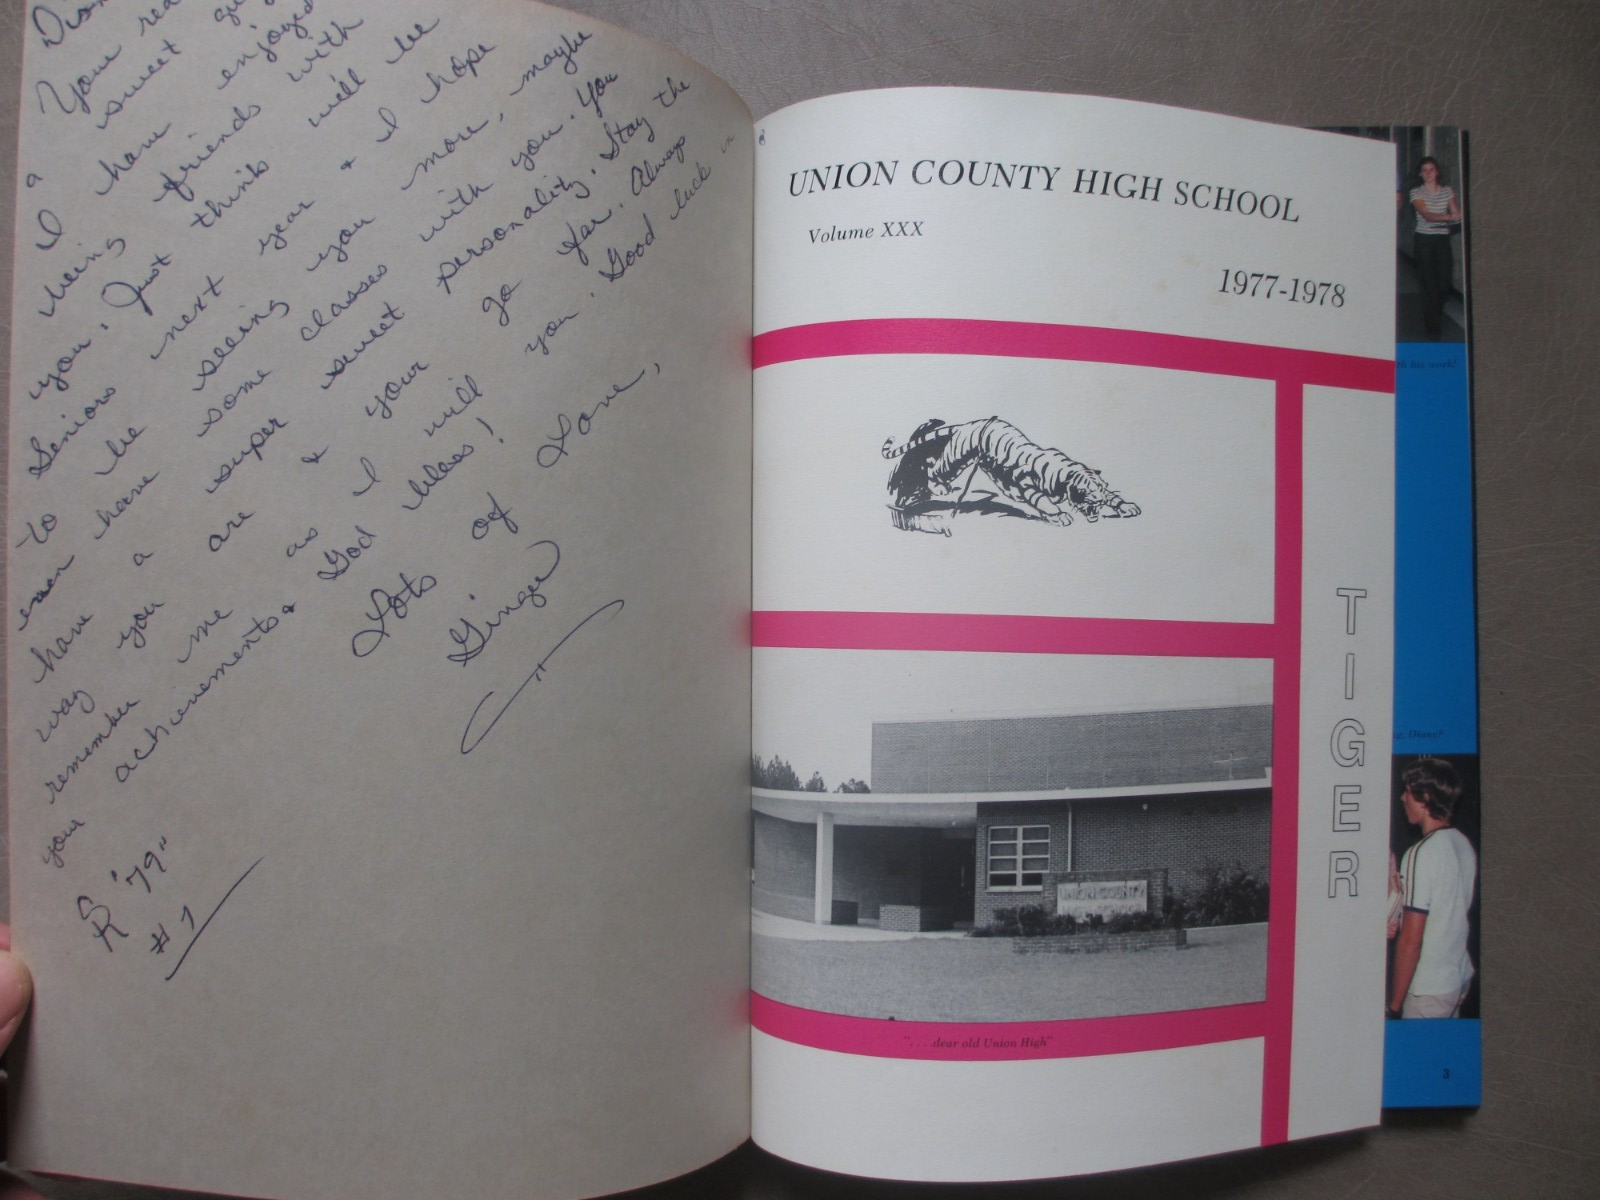 Your rea
a sweet
I have enjoyed
being friends with
you. Just think we'll be
Seniors next year & I hope
to be seeing you more, maybe
even have some classes with you. You
have a super sweet personality. Stay the
way you are & your go far. Always
remember me as I will you. Good luck in
your achievements & God bless!
Lots of Love,
Ginger
R '79"
#1
UNION COUNTY HIGH SCHOOL
Volume XXX
1977-1978
TIGER
UNION COUNTY
HIGH SCHOOL
". . . dear old Union High"
th his work!
Diane?
3